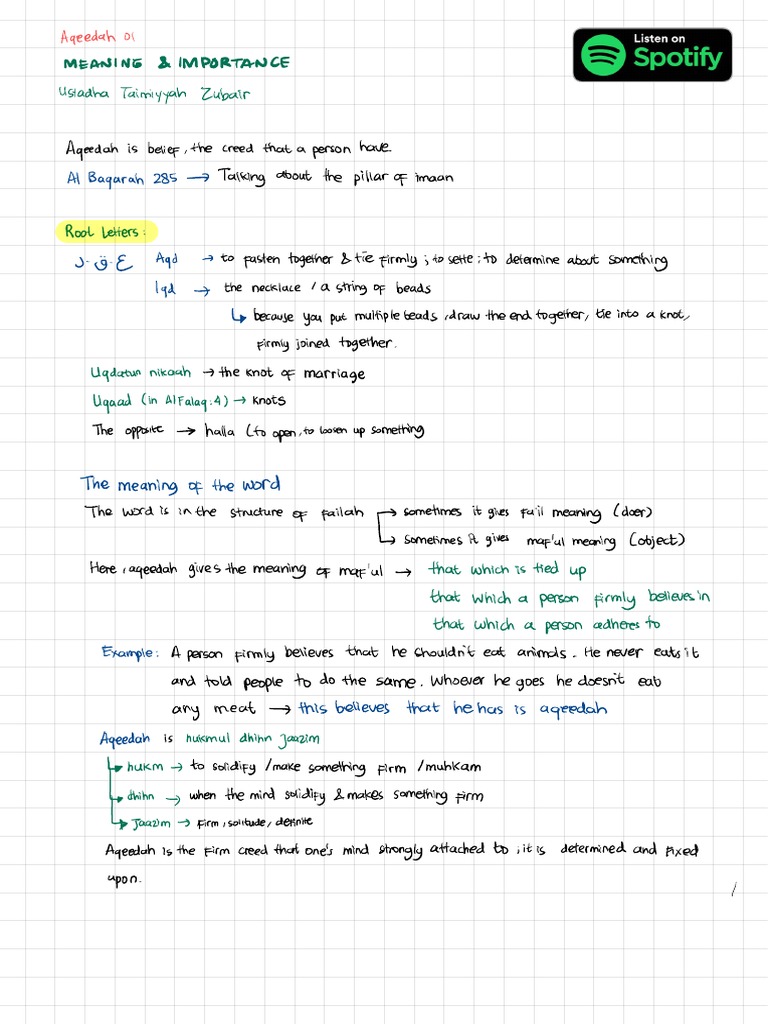 Aqeedah 01
Listen on
Spotify
MEANING & IMPORTANCE
Ustadha Taimiyyah Zubair
Aqeedah is belief, the creed that a person have.
Al Baqarah 285 → Talking about the pillar of imaan
Root Letters:
ع . ق . د Aqd → to fasten together & tie firmly ; to settle ; to determine about something
Iqd → the necklace / a string of beads
↳ because you put multiple beads, draw the end together, tie into a knot,
firmly joined together.
Uqdatun nikaah → the knot of marriage
Uqaad (in AlFalaq:4) → knots
The opposite → halla (to open, to loosen up something
The meaning of the word
The word is in the structure of failah → sometimes it gives fa'il meaning (doer)
→ sometimes it gives maf'ul meaning (object)
Here, aqeedah gives the meaning of maf'ul → that which is tied up
that which a person firmly believes in
that which a person adheres to
Example: A person firmly believes that he shouldn't eat animals. He never eats it
and told people to do the same. Whoever he goes he doesn't eat
any meat → this believes that he has is aqeedah
Aqeedah is hukmul dhihn jaazim
→ hukm → to solidify / make something firm / muhkam
→ dhihn → when the mind solidify & makes something firm
→ Jaazim → firm, solitude, definite
Aqeedah is the firm creed that one's mind strongly attached to, it is determined and fixed
upon.